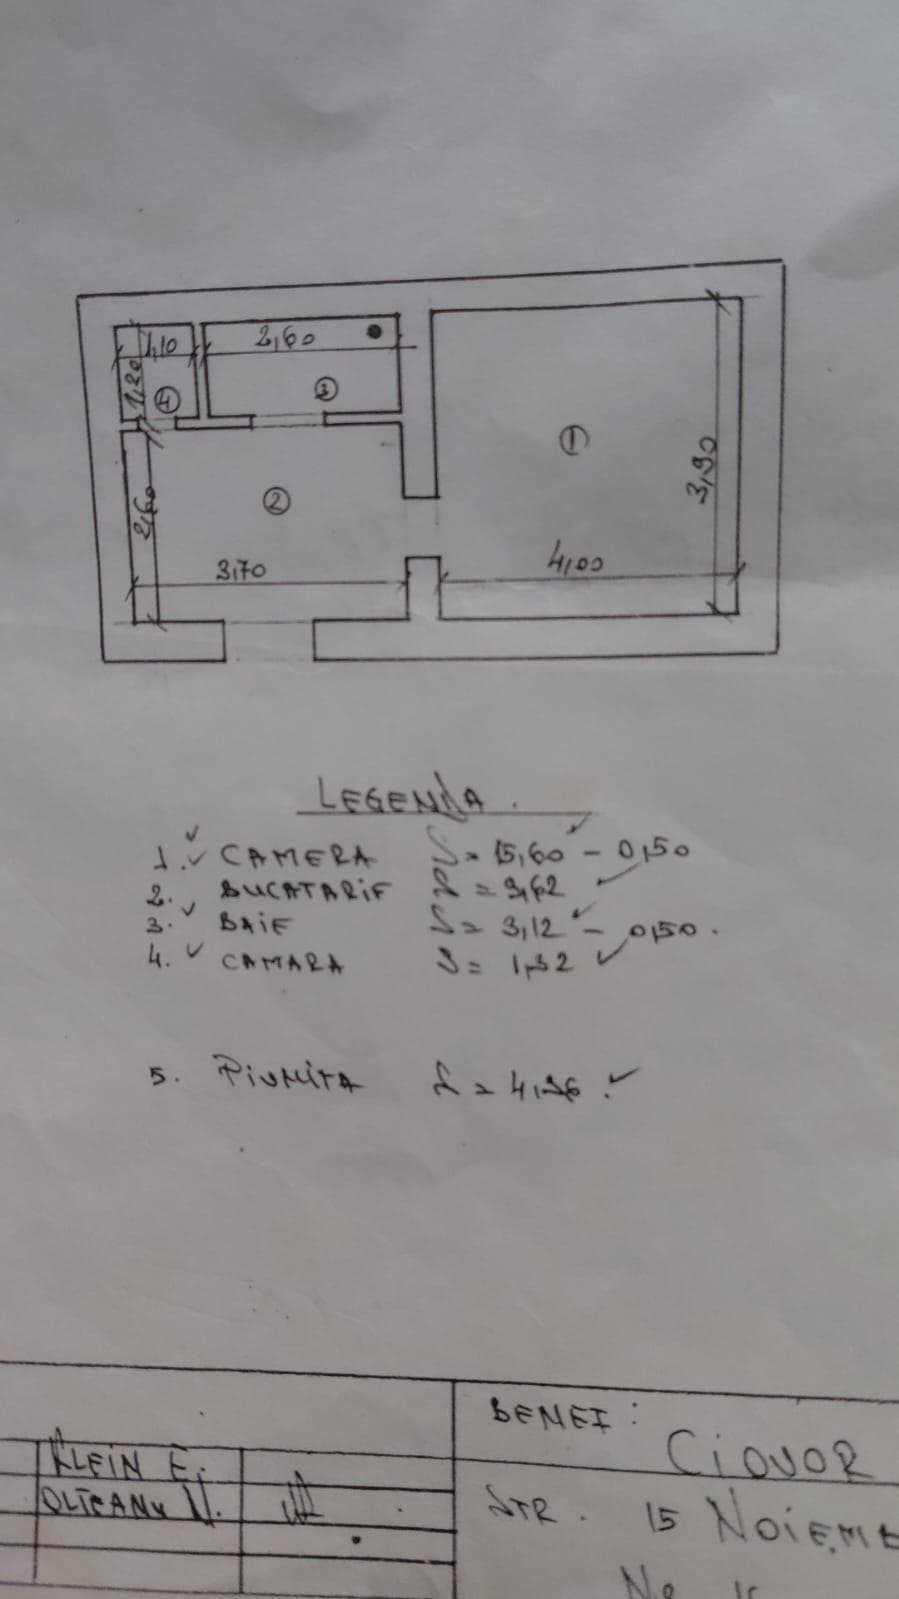 1,10 2,60
1,20
4 3
1
2
3,90
2,60
3,70 4,00
LEGENDA.
1. CAMERA S = 15,60 - 0,50
2. BUCATARIE S = 9,62
3. BAIE S = 3,12 - 0,50.
4. CAMARA S = 1,32
5. PIVNITA S =
BENEF:
KLEIN E. CIOVOR
OLTEANU N. STR. 15 NOIEMB
No